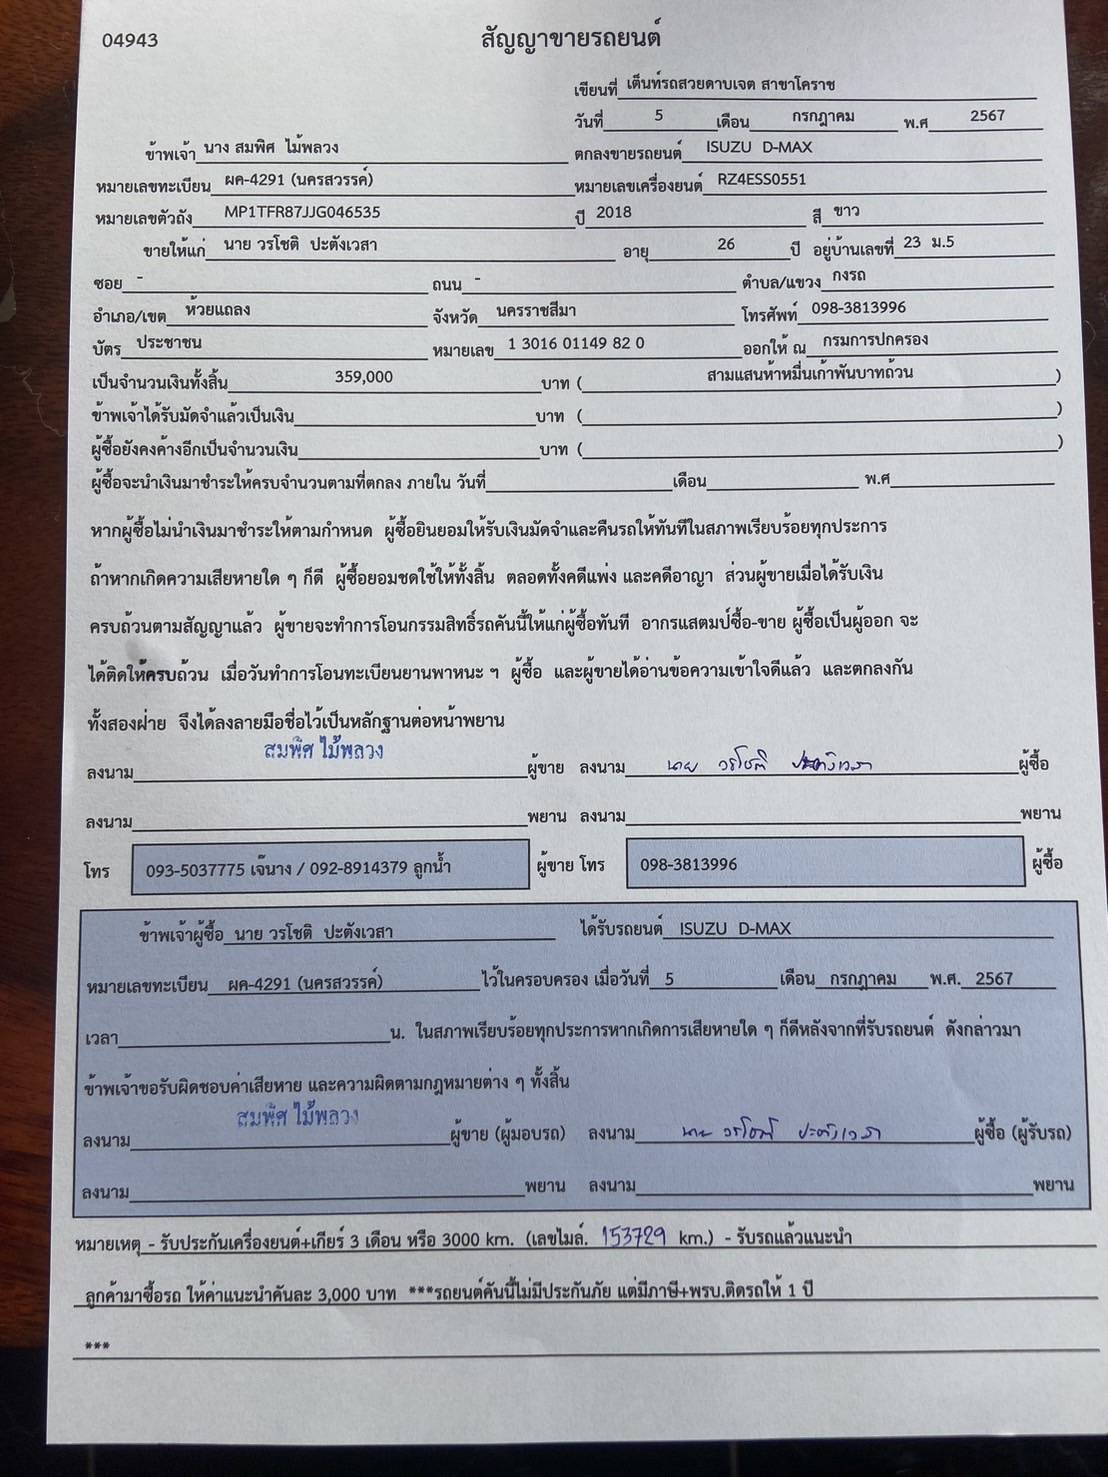 04943
สัญญาขายรถยนต์
เขียนที่ เต็นท์รถสวยดาบเจต สาขาโคราช
วันที่ 5 เดือน กรกฎาคม พ.ศ 2567
ข้าพเจ้า นาง สมพิศ ไม้พลวง ตกลงขายรถยนต์ ISUZU D-MAX
หมายเลขทะเบียน ผค-4291 (นครสวรรค์) หมายเลขเครื่องยนต์ RZ4ESS0551
หมายเลขตัวถัง MP1TFR87JJG046535 ปี 2018 สี ขาว
ขายให้แก่ นาย วรโชติ ปะตังเวสา อายุ 26 ปี อยู่บ้านเลขที่ 23 ม.5
ซอย - ถนน - ตำบล/แขวง กงรถ
อำเภอ/เขต ห้วยแถลง จังหวัด นครราชสีมา โทรศัพท์ 098-3813996
บัตร ประชาชน หมายเลข 1 3016 01149 82 0 ออกให้ ณ กรมการปกครอง
เป็นจำนวนเงินทั้งสิ้น 359,000 บาท ( สามแสนห้าหมื่นเก้าพันบาทถ้วน )
ข้าพเจ้าได้รับมัดจำแล้วเป็นเงิน บาท ( )
ผู้ซื้อยังคงค้างอีกเป็นจำนวนเงิน บาท ( )
ผู้ซื้อจะนำเงินมาชำระให้ครบจำนวนตามที่ตกลง ภายใน วันที่ เดือน พ.ศ
หากผู้ซื้อไม่นำเงินมาชำระให้ตามกำหนด ผู้ซื้อยินยอมให้รับเงินมัดจำและคืนรถให้ทันทีในสภาพเรียบร้อยทุกประการ
ถ้าหากเกิดความเสียหายใด ๆ ก็ดี ผู้ซื้อยอมชดใช้ให้ทั้งสิ้น ตลอดทั้งคดีแพ่ง และคดีอาญา ส่วนผู้ขายเมื่อได้รับเงิน
ครบถ้วนตามสัญญาแล้ว ผู้ขายจะทำการโอนกรรมสิทธิ์รถคันนี้ให้แก่ผู้ซื้อทันที อากรแสตมป์ซื้อ-ขาย ผู้ซื้อเป็นผู้ออก จะ
ได้ติดให้ครบถ้วน เมื่อวันทำการโอนทะเบียนยานพาหนะ ฯ ผู้ซื้อ และผู้ขายได้อ่านข้อความเข้าใจดีแล้ว และตกลงกัน
ทั้งสองฝ่าย จึงได้ลงลายมือชื่อไว้เป็นหลักฐานต่อหน้าพยาน
ลงนาม สมพิศ ไม้พลวง ผู้ขาย ลงนาม นาย วรโชติ ปะตังเวสา ผู้ซื้อ
ลงนาม พยาน ลงนาม พยาน
โทร 093-5037775 เจ๊นาง / 092-8914379 ลูกน้ำ ผู้ขาย โทร 098-3813996 ผู้ซื้อ
ข้าพเจ้าผู้ซื้อ นาย วรโชติ ปะตังเวสา ได้รับรถยนต์ ISUZU D-MAX
หมายเลขทะเบียน ผค-4291 (นครสวรรค์) ไว้ในครอบครอง เมื่อวันที่ 5 เดือน กรกฎาคม พ.ศ. 2567
เวลา น. ในสภาพเรียบร้อยทุกประการหากเกิดการเสียหายใด ๆ ก็ดีหลังจากที่รับรถยนต์ ดังกล่าวมา
ข้าพเจ้าขอรับผิดชอบค่าเสียหาย และความผิดตามกฎหมายต่าง ๆ ทั้งสิ้น
ลงนาม สมพิศ ไม้พลวง ผู้ขาย (ผู้มอบรถ) ลงนาม นาย วรโชติ ปะตังเวสา ผู้ซื้อ (ผู้รับรถ)
ลงนาม พยาน ลงนาม พยาน
หมายเหตุ - รับประกันเครื่องยนต์+เกียร์ 3 เดือน หรือ 3000 km. (เลขไมล์. 153729 km.) - รับรถแล้วแนะนำ
ลูกค้ามาซื้อรถ ให้ค่าแนะนำคันละ 3,000 บาท ***รถยนต์คันนี้ไม่มีประกันภัย แต่มีภาษี+พรบ.ติดรถให้ 1 ปี
***